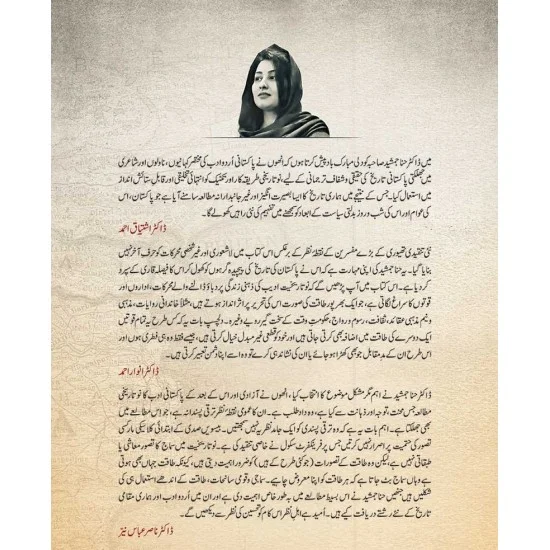 میں ڈاکٹر حنا جمشید صاحبہ کو دلی مبارک باد پیش کرتا ہوں کہ انھوں نے پاکستانی اُردو ادب کی مختصر کہانیوں، ناولوں اور شاعری
میں جھلکتی پاکستانی تاریخ کی حقیقی و شفاف ترجمانی کے لیے، نو تاریخی طریقہ کار اور تکنیک کو انتہائی تخلیقی اور قابلِ ستائش انداز
میں استعمال کیا۔ جس کے نتیجے میں ہماری تاریخ کا ایسا بصیرت انگیز اور غیر جانبدارانہ مطالعہ سامنے آیا ہے جو پاکستان، اس
کی عوام اور اس کی شب و روز بدلتی سیاست کے ابعاد کو سمجھنے میں تفہیم کی نئی راہیں کھولے گا۔
ڈاکٹر اشتیاق احمد
نئی تنقیدی تھیوری کے بڑے مفسرین کے نقطہ نظر کے برعکس اس کتاب میں لاشعوری اور غیر شخصی محرکات کو حرفِ آخر نہیں
بنایا گیا۔ یہ حنا جمشید کی اپنی مہارت ہے کہ اس نے پاکستان کی تاریخ کی پیچیدہ گرہوں کو کھول کر اس کا فیصلہ قاری کے سپرد
کر دیا ہے۔ اس کتاب میں آپ پڑھیں گے کہ نو تاریخیت ادیب کی ذہنی زندگی پر دباؤ ڈالنے والے محرکات، اداروں اور
قوتوں کا سراغ لگاتی ہے، جو ایک بھرپور طاقت کی صورت اس کی تحریر پر اثر انداز ہوتے ہیں، مثلاً خاندانی روایات، مذہبی
و نیم مذہبی عقائد، ثقافت، رسوم و رواج، حکومتِ وقت کے سخت گیر رویے وغیرہ۔ دلچسپ بات یہ کہ کس طرح یہ تمام قوتیں
ایک دوسرے کی طاقت میں اضافہ بھی کرتی ہیں اور خود کو قطعی غیر مبدل خیال کرتی ہیں، جیسے فقط وہ ہی فطری ہوں اور
اس طرح ان کے مدِمقابل جو بھی کھڑا ہو جائے یا ان کی نشاندہی کرے تو وہ اسے اپنا دشمن تعبیر کرتی ہیں۔
ڈاکٹر انوار احمد
ڈاکٹر حنا جمشید نے اہم مگر مشکل موضوع کا انتخاب کیا، انھوں نے آزادی اور اس کے بعد کے پاکستانی ادب کا نو تاریخی
مطالعہ جس محنت، توجہ اور ذہانت سے کیا ہے، وہ داد طلب ہے۔ ان کا عمومی نقطہ نظر ترقی پسندانہ ہے، جو اس مطالعے میں
بھی جھلکتا ہے۔ اہم بات یہ ہے کہ وہ ترقی پسندی کو ایک جامد نظریہ نہیں سمجھتیں۔ بیسویں صدی کے ابتدائی کلاسیکی مارکسی
تصور کی حتمیت پر اصرار نہیں کرتیں جس پر فرینکفرٹ سکول نے خاصی تنقید کی ہے۔ نو تاریخیت میں سماج کا تصور معاشی یا
طبقاتی نہیں ہے، لیکن وہ طاقت کے تصورات (جو کئی طرح کے ہیں) کو ضرور اہمیت دیتی ہیں، کیونکہ طاقت جہاں بھی ہوتی
ہے وہاں سماج بٹ جاتا ہے کہ ہر طاقت کو اپنا معروض چاہیے۔ سماجی و قومی سانحات، طاقت کے اندھے استعمال ہی کی
شکلیں ہیں جنھیں حنا جمشید نے اس بسیط مطالعے میں بہ طور خاص اہمیت دی ہے اور ان میں اُردو ادب اور ہماری مقامی
تاریخ کے نئے رشتے دریافت کیے ہیں۔ اُمید ہے اہلِ نظر اس کام کو تحسین کی نظر سے دیکھیں گے۔
ڈاکٹر ناصر عباس نیر